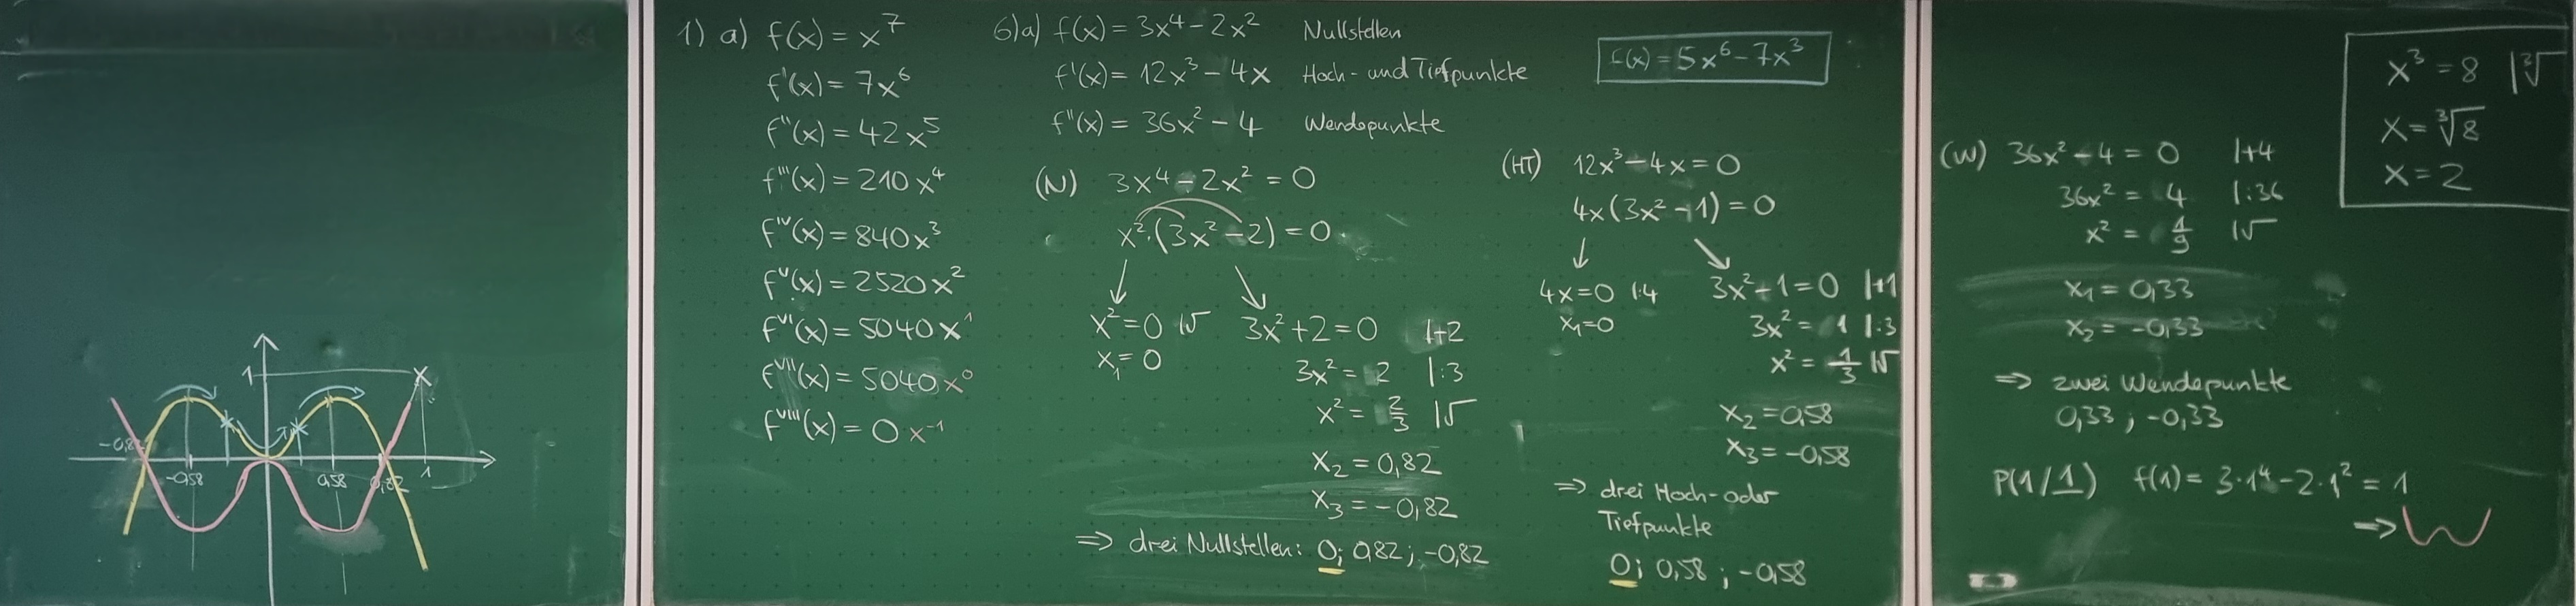 1
-0,82
-0,58
0,58
0,82
1
1) a) f(x) = x⁷
f'(x) = 7x⁶
f''(x) = 42x⁵
f'''(x) = 210x⁴
fᴵⱽ(x) = 840x³
fⱽ(x) = 2520x²
fⱽᴵ(x) = 5040x¹
fⱽᴵᴵ(x) = 5040x⁰
fⱽᴵᴵᴵ(x) = 0x⁻¹
6)a) f(x) = 3x⁴ - 2x² Nullstellen
f'(x) = 12x³ - 4x Hoch- und Tiefpunkte
f''(x) = 36x² - 4 Wendepunkte
(N) 3x⁴ - 2x² = 0
x²·(3x² - 2) = 0
x² = 0 |√
x₁ = 0
3x² + 2 = 0 |+2
3x² = 2 |:3
x² = 2/3 |√
x₂ = 0,82
x₃ = -0,82
=> drei Nullstellen: 0; 0,82; -0,82
f(x) = 5x⁶ - 7x³
(HT) 12x³ - 4x = 0
4x(3x² - 1) = 0
4x = 0 |:4
x₁ = 0
3x² - 1 = 0 |+1
3x² = 1 |:3
x² = 1/3 |√
x₂ = 0,58
x₃ = -0,58
=> drei Hoch- oder
Tiefpunkte
0; 0,58; -0,58
(W) 36x² - 4 = 0 |+4
36x² = 4 |:36
x² = 1/9 |√
x₁ = 0,33
x₂ = -0,33
=> zwei Wendepunkte
0,33; -0,33
P(1/1) f(1) = 3·1⁴ - 2·1² = 1
=>
x³ = 8 |∛
x = ∛8
x = 2